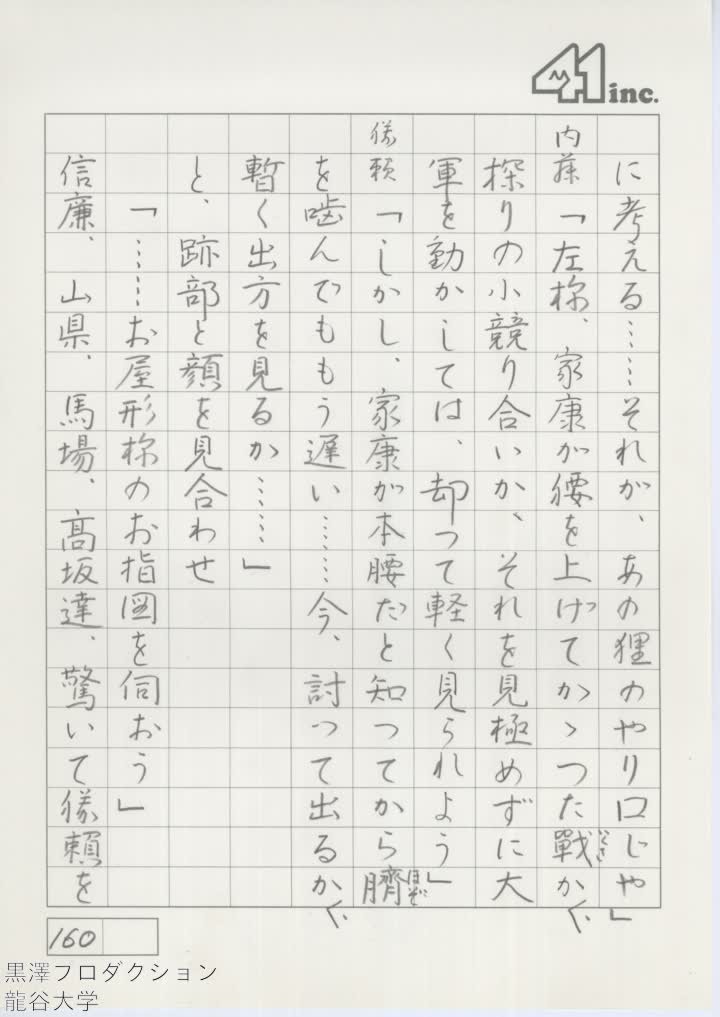 41 inc.
に考える……それが、あの狸のやり口じゃ」
内藤「左様、家康が腰を上げてかゝつた戰(いくさ)か、
探りの小競り合いか、それを見極めずに大
軍を動かしては、却つて軽く見られよう」
勝頼「しかし、家康が本腰だと知つてから臍(ほぞ)
を噛んでももう遅い……今、討つて出るか、
暫く出方を見るか……」
と、跡部と顔を見合わせ
「……お屋形様のお指図を伺おう」
信廉、山県、馬場、高坂達、驚いて勝頼を
160
黒澤プロダクション
龍谷大学